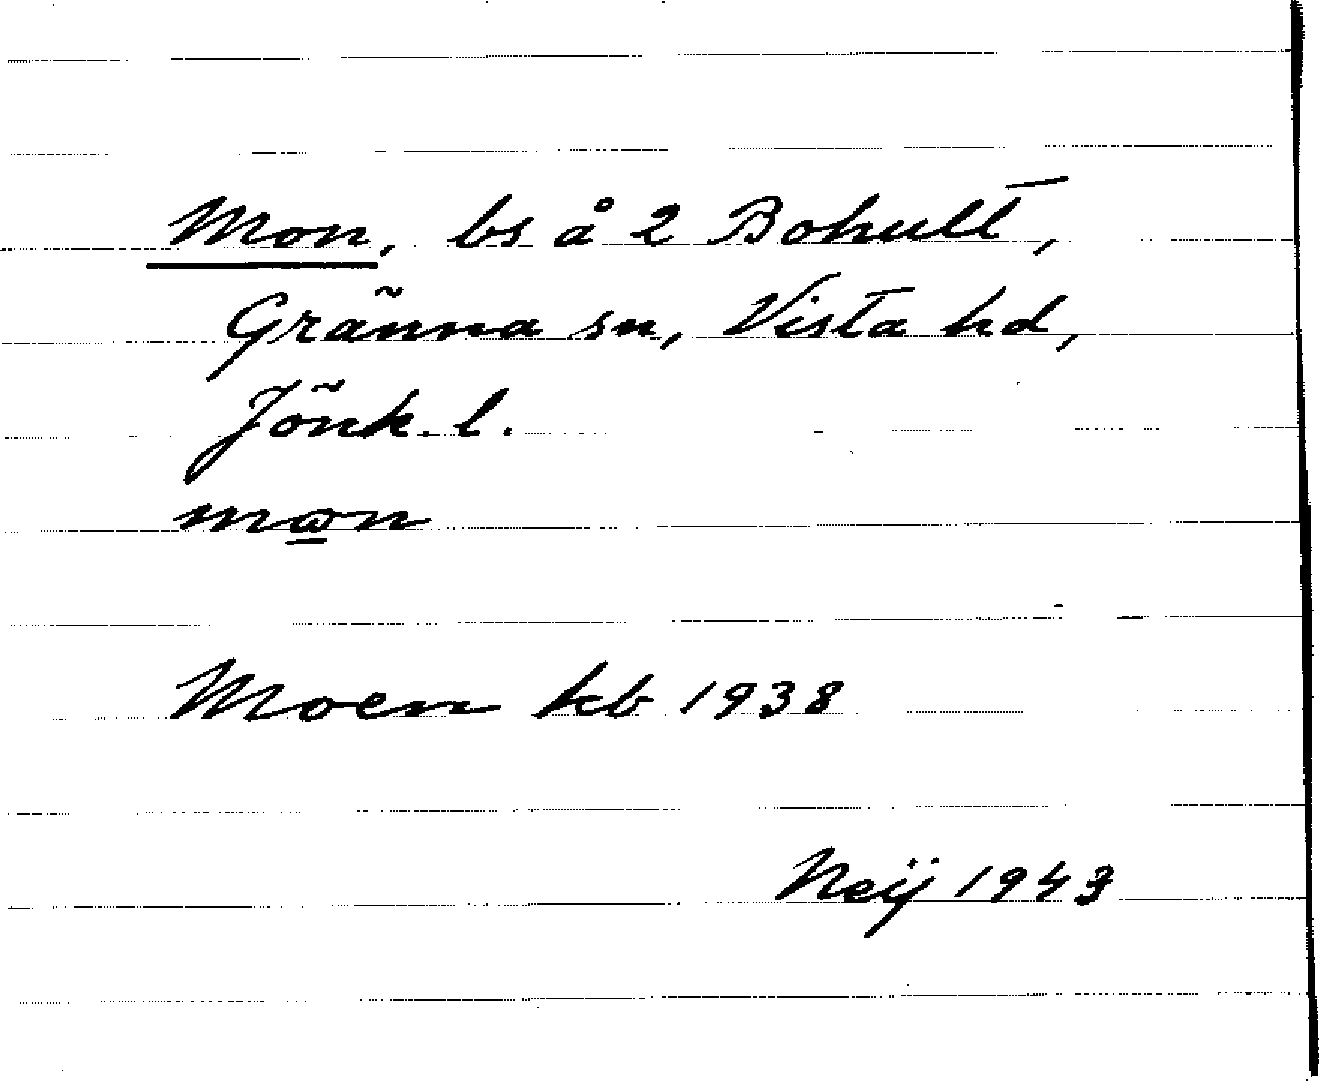 Mon, bs å 2 Bohult,
Gränna sn, Vista hd,
Jönk. l.
mωn
Moen kb 1938
Neij 1943